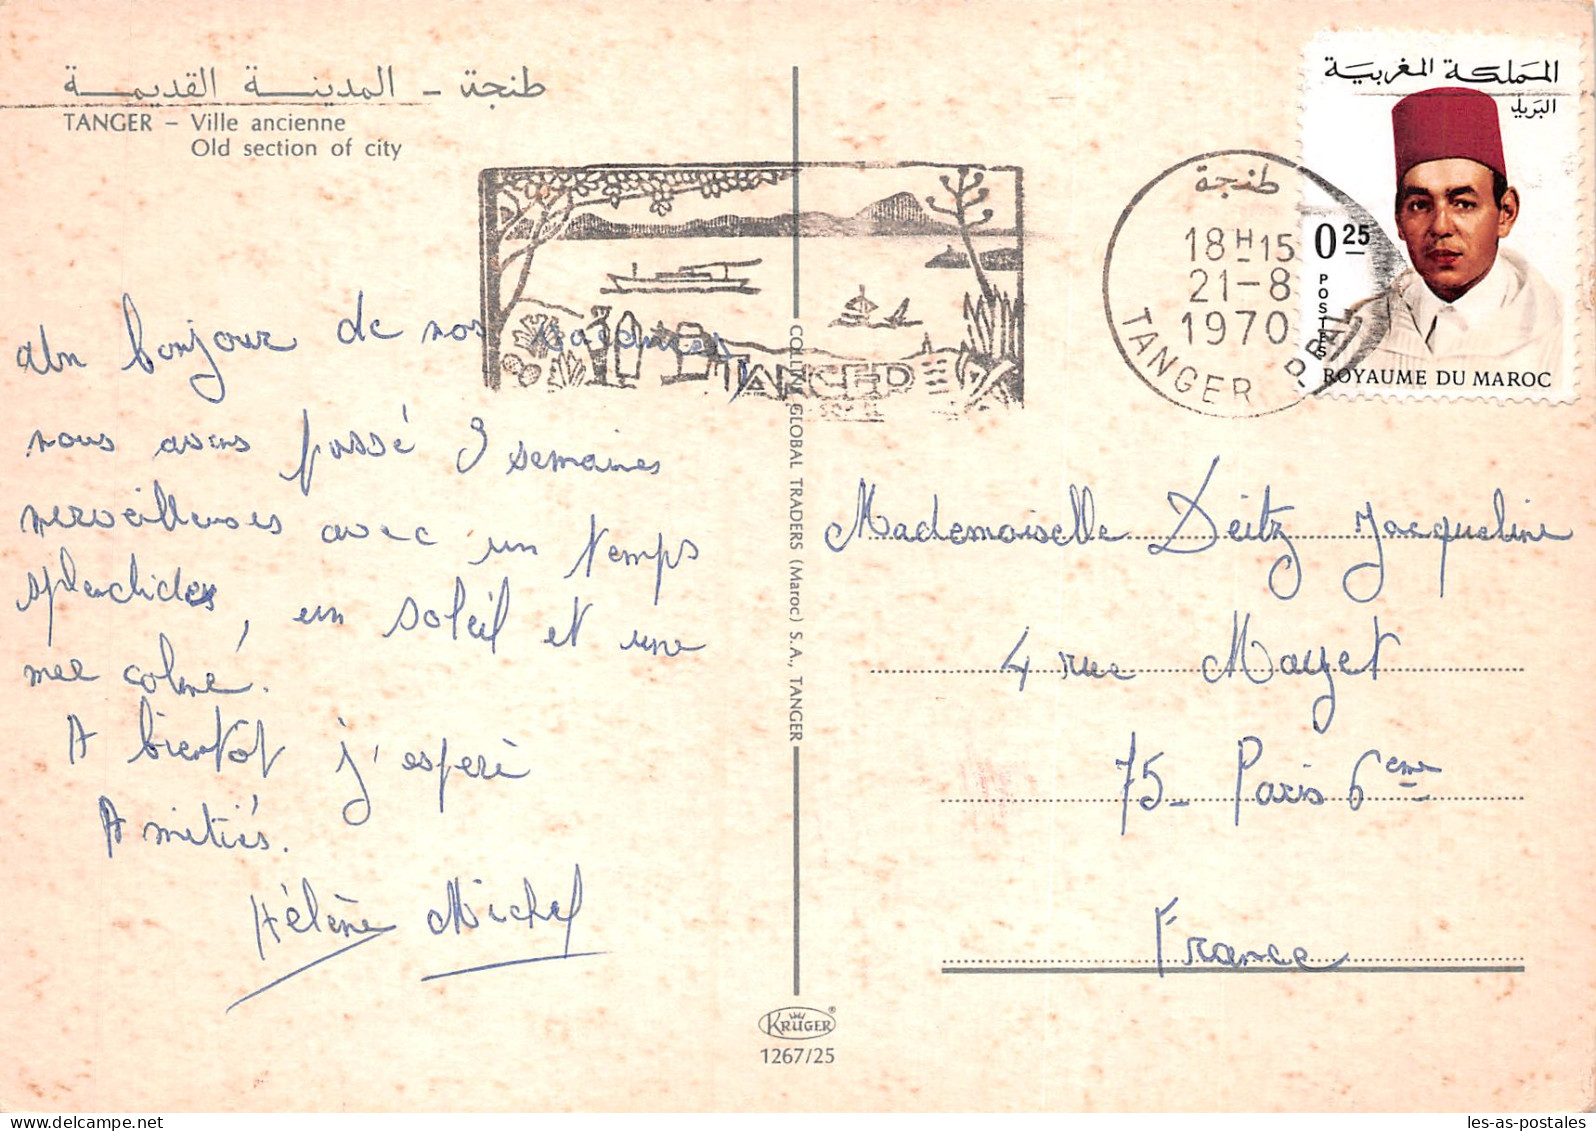 طنجة - المدينة القديمة
TANGER - Ville ancienne
Old section of city
المملكة المغربية
البريد
0 25
POSTES
ROYAUME DU MAROC
طنجة
18H15
21-8
1970
TANGER PPAL
TANGER
bonjour de nos vacances,
nous avons passé 3 semaines
merveilleuses avec un temps
splendides, un soleil et une
mer calme.
A bientot j'espere
Amitiés.
Hélène Michel
COLLIN GLOBAL TRADERS (Maroc) S.A., TANGER
Mademoiselle Deitz Jacqueline
4 rue Mayet
75- Paris 6eme
France
KRÜGER®
1267/25
les-as-postales
les-as-postales.com